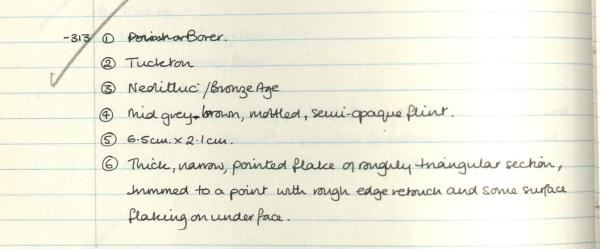 -313 ① Borer.
② Tuckton
③ Neolithic/Bronze Age
④ Mid grey-brown, mottled, semi-opaque flint.
⑤ 6.5cm. x 2.1cm.
⑥ Thick, narrow, pointed flake of roughly triangular section,
trimmed to a point with rough edge retouch and some surface
flaking on under face.